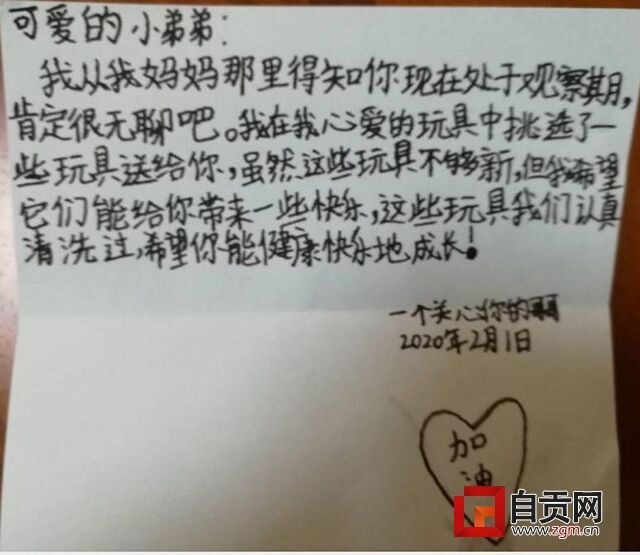 可爱的小弟弟：
我从我妈妈那里得知你现在处于观察期，
肯定很无聊吧。我在我心爱的玩具中挑选了一
些玩具送给你，虽然这些玩具不够新，但我希望
它们能给你带来一些快乐，这些玩具我们认真
清洗过，希望你能健康快乐地成长！
一个关心你的哥哥
2020年2月1日
加
油
自贡网
www.zgm.cn